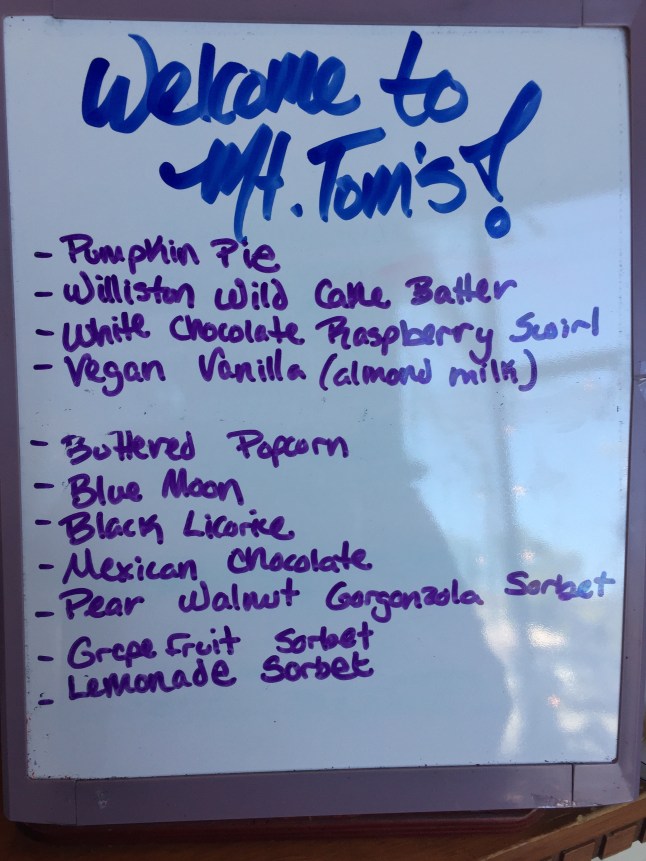 Welcome to
Mt. Tom's!
- Pumpkin Pie
- Williston Wild Cake Batter
- White Chocolate Raspberry Swirl
- Vegan Vanilla (almond milk)
- Buttered Popcorn
- Blue Moon
- Black Licorice
- Mexican Chocolate
- Pear Walnut Gorgonzola Sorbet
- Grapefruit Sorbet
- Lemonade Sorbet